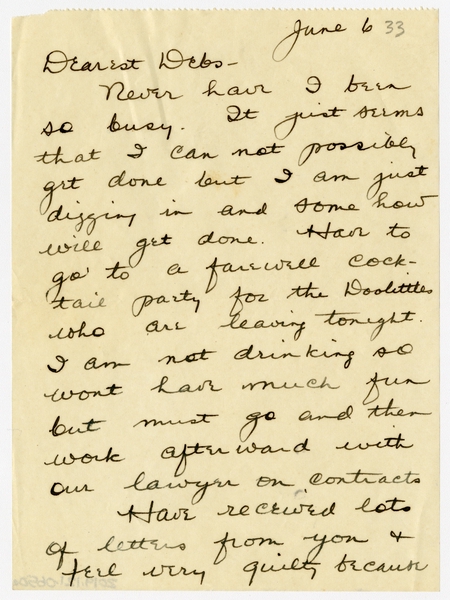 June 6 33
Dearest Debs-
Never have I been
so busy. It just seems
that I can not possibly
get done but I am just
digging in and some how
will get done. Have to
go to a farewell cock-
tail party for the Doolittles
who are leaving tonight.
I am not drinking so
wont have much fun
but must go and then
work afterward with
our lawyer on contracts
Have received lots
of letters from you +
feel very guilty because